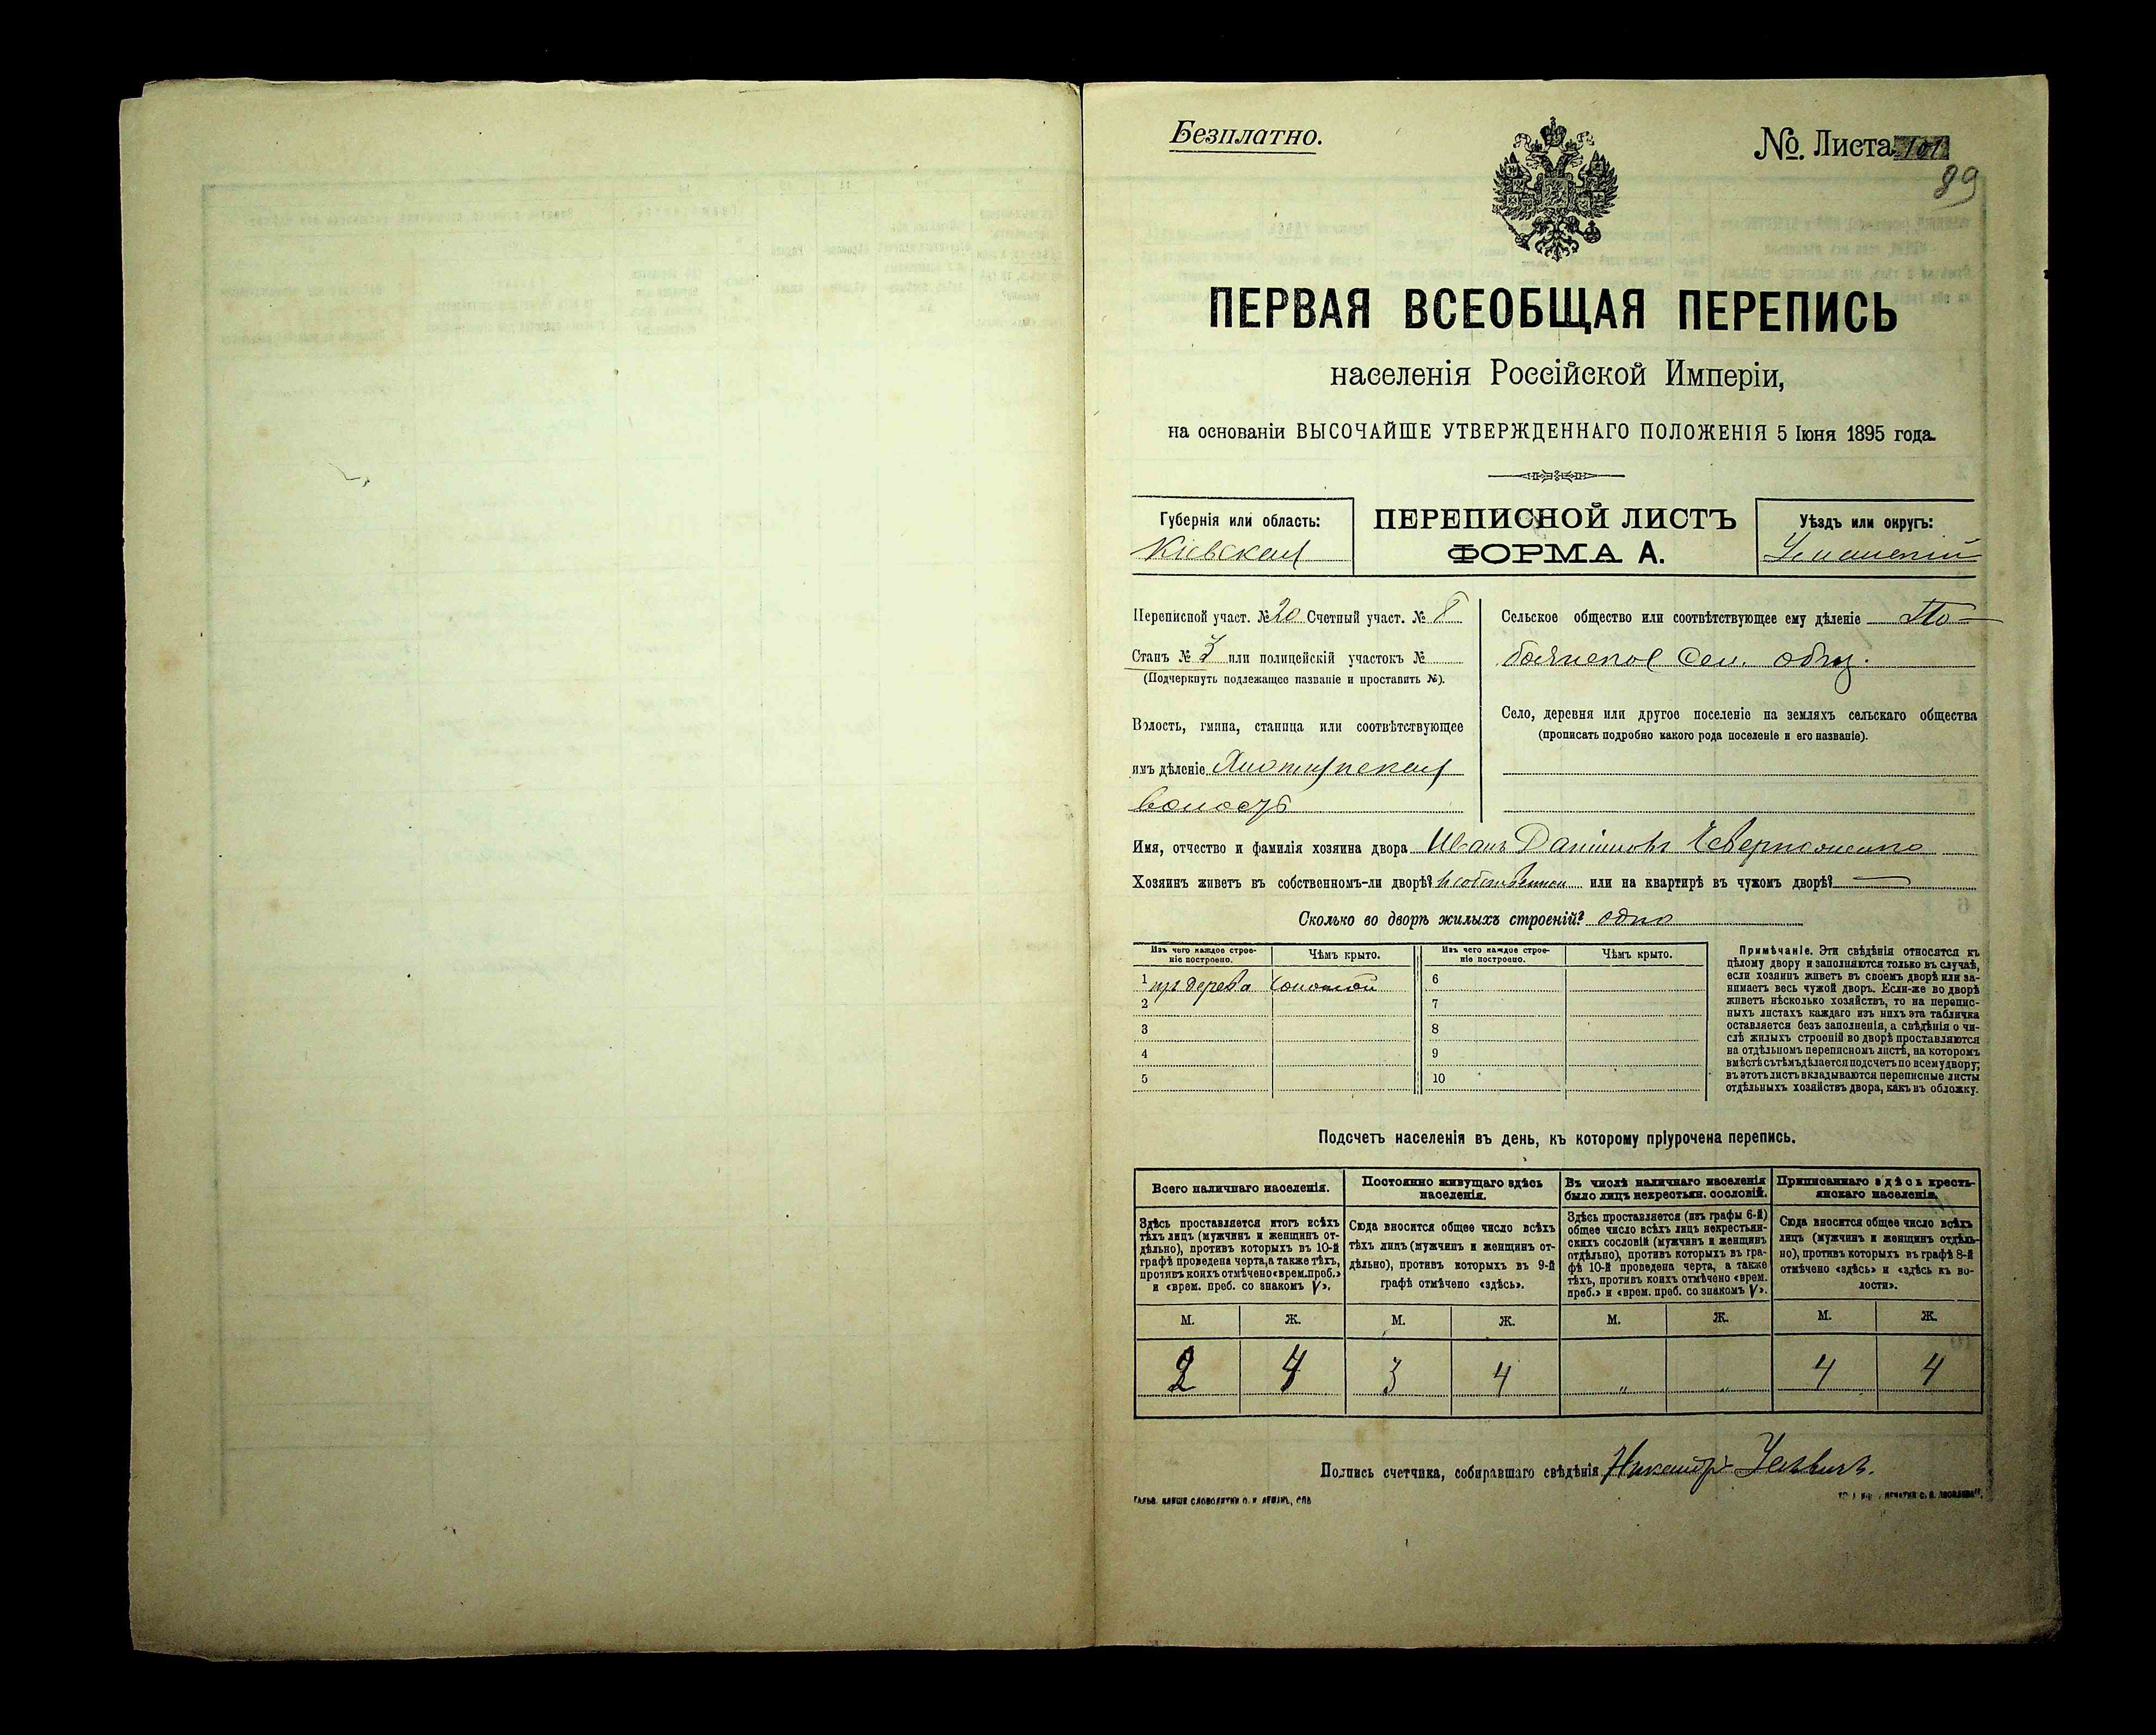 Безплатно.
№. Листа 101
89
ПЕРВАЯ ВСЕОБЩАЯ ПЕРЕПИСЬ
населенія Россійской Имперіи,
на основаніи ВЫСОЧАЙШЕ УТВЕРЖДЕННАГО ПОЛОЖЕНІЯ 5 Іюня 1895 года.
Губернія или область:
Кіевская
ПЕРЕПИСНОЙ ЛИСТЪ
ФОРМА А.
Уѣздъ или округъ:
Уманскій
Переписной участ. № 20 Счетный участ. № 8
Станъ № 3 или полицейскій участокъ №
(Подчеркнуть подлежащее названіе и проставить №).
Волость, гмина, станица или соотвѣтствующее
имъ дѣленіе
волость
Сельское общество или соотвѣтствующее ему дѣленіе По-
сел. общ.
Село, деревня или другое поселеніе на земляхъ сельскаго общества
(прописать подробно какого рода поселеніе и его названіе).
Имя, отчество и фамилія хозяина двора Иванъ Даниловъ
Хозяинъ живетъ въ собственномъ-ли дворѣ? или на квартирѣ въ чужомъ дворѣ? —
Сколько во дворѣ жилыхъ строеній? одно
Изъ чего каждое строе-
ніе построено.
Чѣмъ крыто.
Изъ чего каждое строе-
ніе построено.
Чѣмъ крыто.
1 изъ дерева соломой
2
3
4
5
6
7
8
9
10
Примѣчаніе. Эти свѣдѣнія относятся къ
цѣлому двору и заполняются только въ случаѣ,
если хозяинъ живетъ въ своемъ дворѣ или за-
нимаетъ весь чужой дворъ. Если-же во дворѣ
живетъ нѣсколько хозяйствъ, то на перепис-
ныхъ листахъ каждаго изъ нихъ эта табличка
оставляется безъ заполненія, а свѣдѣнія о чи-
слѣ жилыхъ строеній во дворѣ проставляются
на отдѣльномъ переписномъ листѣ, на которомъ
вмѣстѣ съ тѣмъ дѣлается подсчетъ по всему двору;
въ этотъ листъ вкладываются переписные листы
отдѣльныхъ хозяйствъ двора, какъ въ обложку.
Подсчетъ населенія въ день, къ которому пріурочена перепись.
Всего наличнаго населенія.
Здѣсь проставляется итогъ всѣхъ
тѣхъ лицъ (мужчинъ и женщинъ от-
дѣльно), противъ которыхъ въ 10-й
графѣ проведена черта, а также тѣхъ,
противъ коихъ отмѣчено «врем. преб.»
и «врем. преб. со знакомъ V».
Постоянно живущаго здѣсь
населенія.
Сюда вносится общее число всѣхъ
тѣхъ лицъ (мужчинъ и женщинъ от-
дѣльно), противъ которыхъ въ 9-й
графѣ отмѣчено «здѣсь».
Въ числѣ наличнаго населенія
было лицъ некрестьян. сословій.
Здѣсь проставляется (изъ графы 6-й)
общее число всѣхъ лицъ некрестьян-
скихъ сословій (мужчинъ и женщинъ
отдѣльно), противъ которыхъ въ гра-
фѣ 10-й проведена черта, а также
тѣхъ, противъ коихъ отмѣчено «врем.
преб.» и «врем. преб. со знакомъ V».
Приписаннаго здѣсь кресть-
янскаго населенія.
Сюда вносится общее число всѣхъ
лицъ (мужчинъ и женщинъ отдѣль-
но), противъ которыхъ въ графѣ 8-й
отмѣчено «здѣсь» и «здѣсь къ во-
лости».
М. Ж. М. Ж. М. Ж. М. Ж.
2 4 3 4 " " 4 4
Подпись счетчика, собиравшаго свѣдѣнія Никандръ